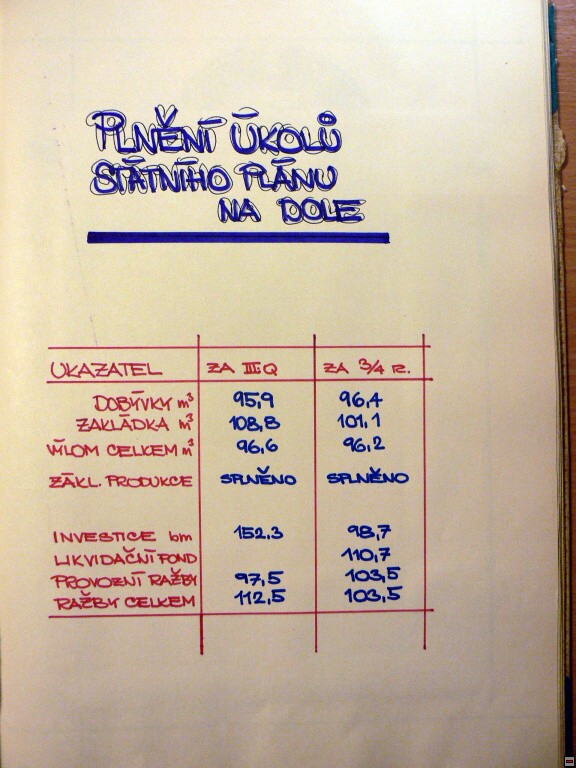 PLNĚNÍ ÚKOLŮ
STÁTNÍHO PLÁNU
NA DOLE
UKAZATEL ZA III.Q ZA 3/4 R.
DOBÝVKY m³ 95,9 96,4
ZAKLÁDKA m³ 108,8 101,1
VÝLOM CELKEM m³ 96,6 96,2
ZÁKL. PRODUKCE SPLNĚNO SPLNĚNO
INVESTICE bm 152,3 98,7
LIKVIDAČNÍ FOND 110,7
PROVOZNÍ RAŽBY 97,5 103,5
RAŽBY CELKEM 112,5 103,5